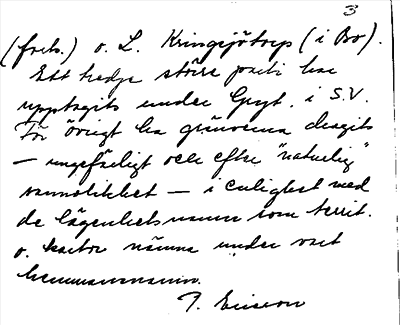 3
(forts.) o. L. Kringsjötorp (i Bo).
Ett tredje större parti har
upptagits under Gryt. i S.V.
För övrigt ha gränserna dragits
— ungefärligt och efter "naturlig"
sannolikhet — i enlighet med
de lägenhetsnamn som territ.
o. kartor nämna under vart
hemmansnamn.
Ericson